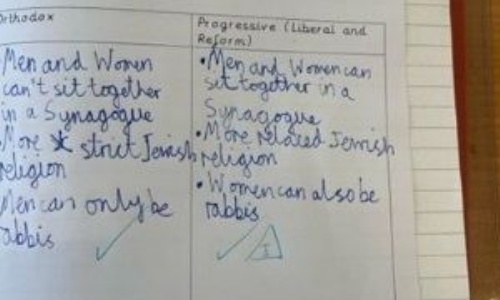 Orthodox
Men and Women
can't sit together
in a Synagogue
More strict Jewish
religion
Men can only be
rabbis
Progressive (Liberal and
Reform)
• Men and Women can
sit together in a
Synagogue
• More relaced Jewish
religion
• Women can also be
rabbis
I